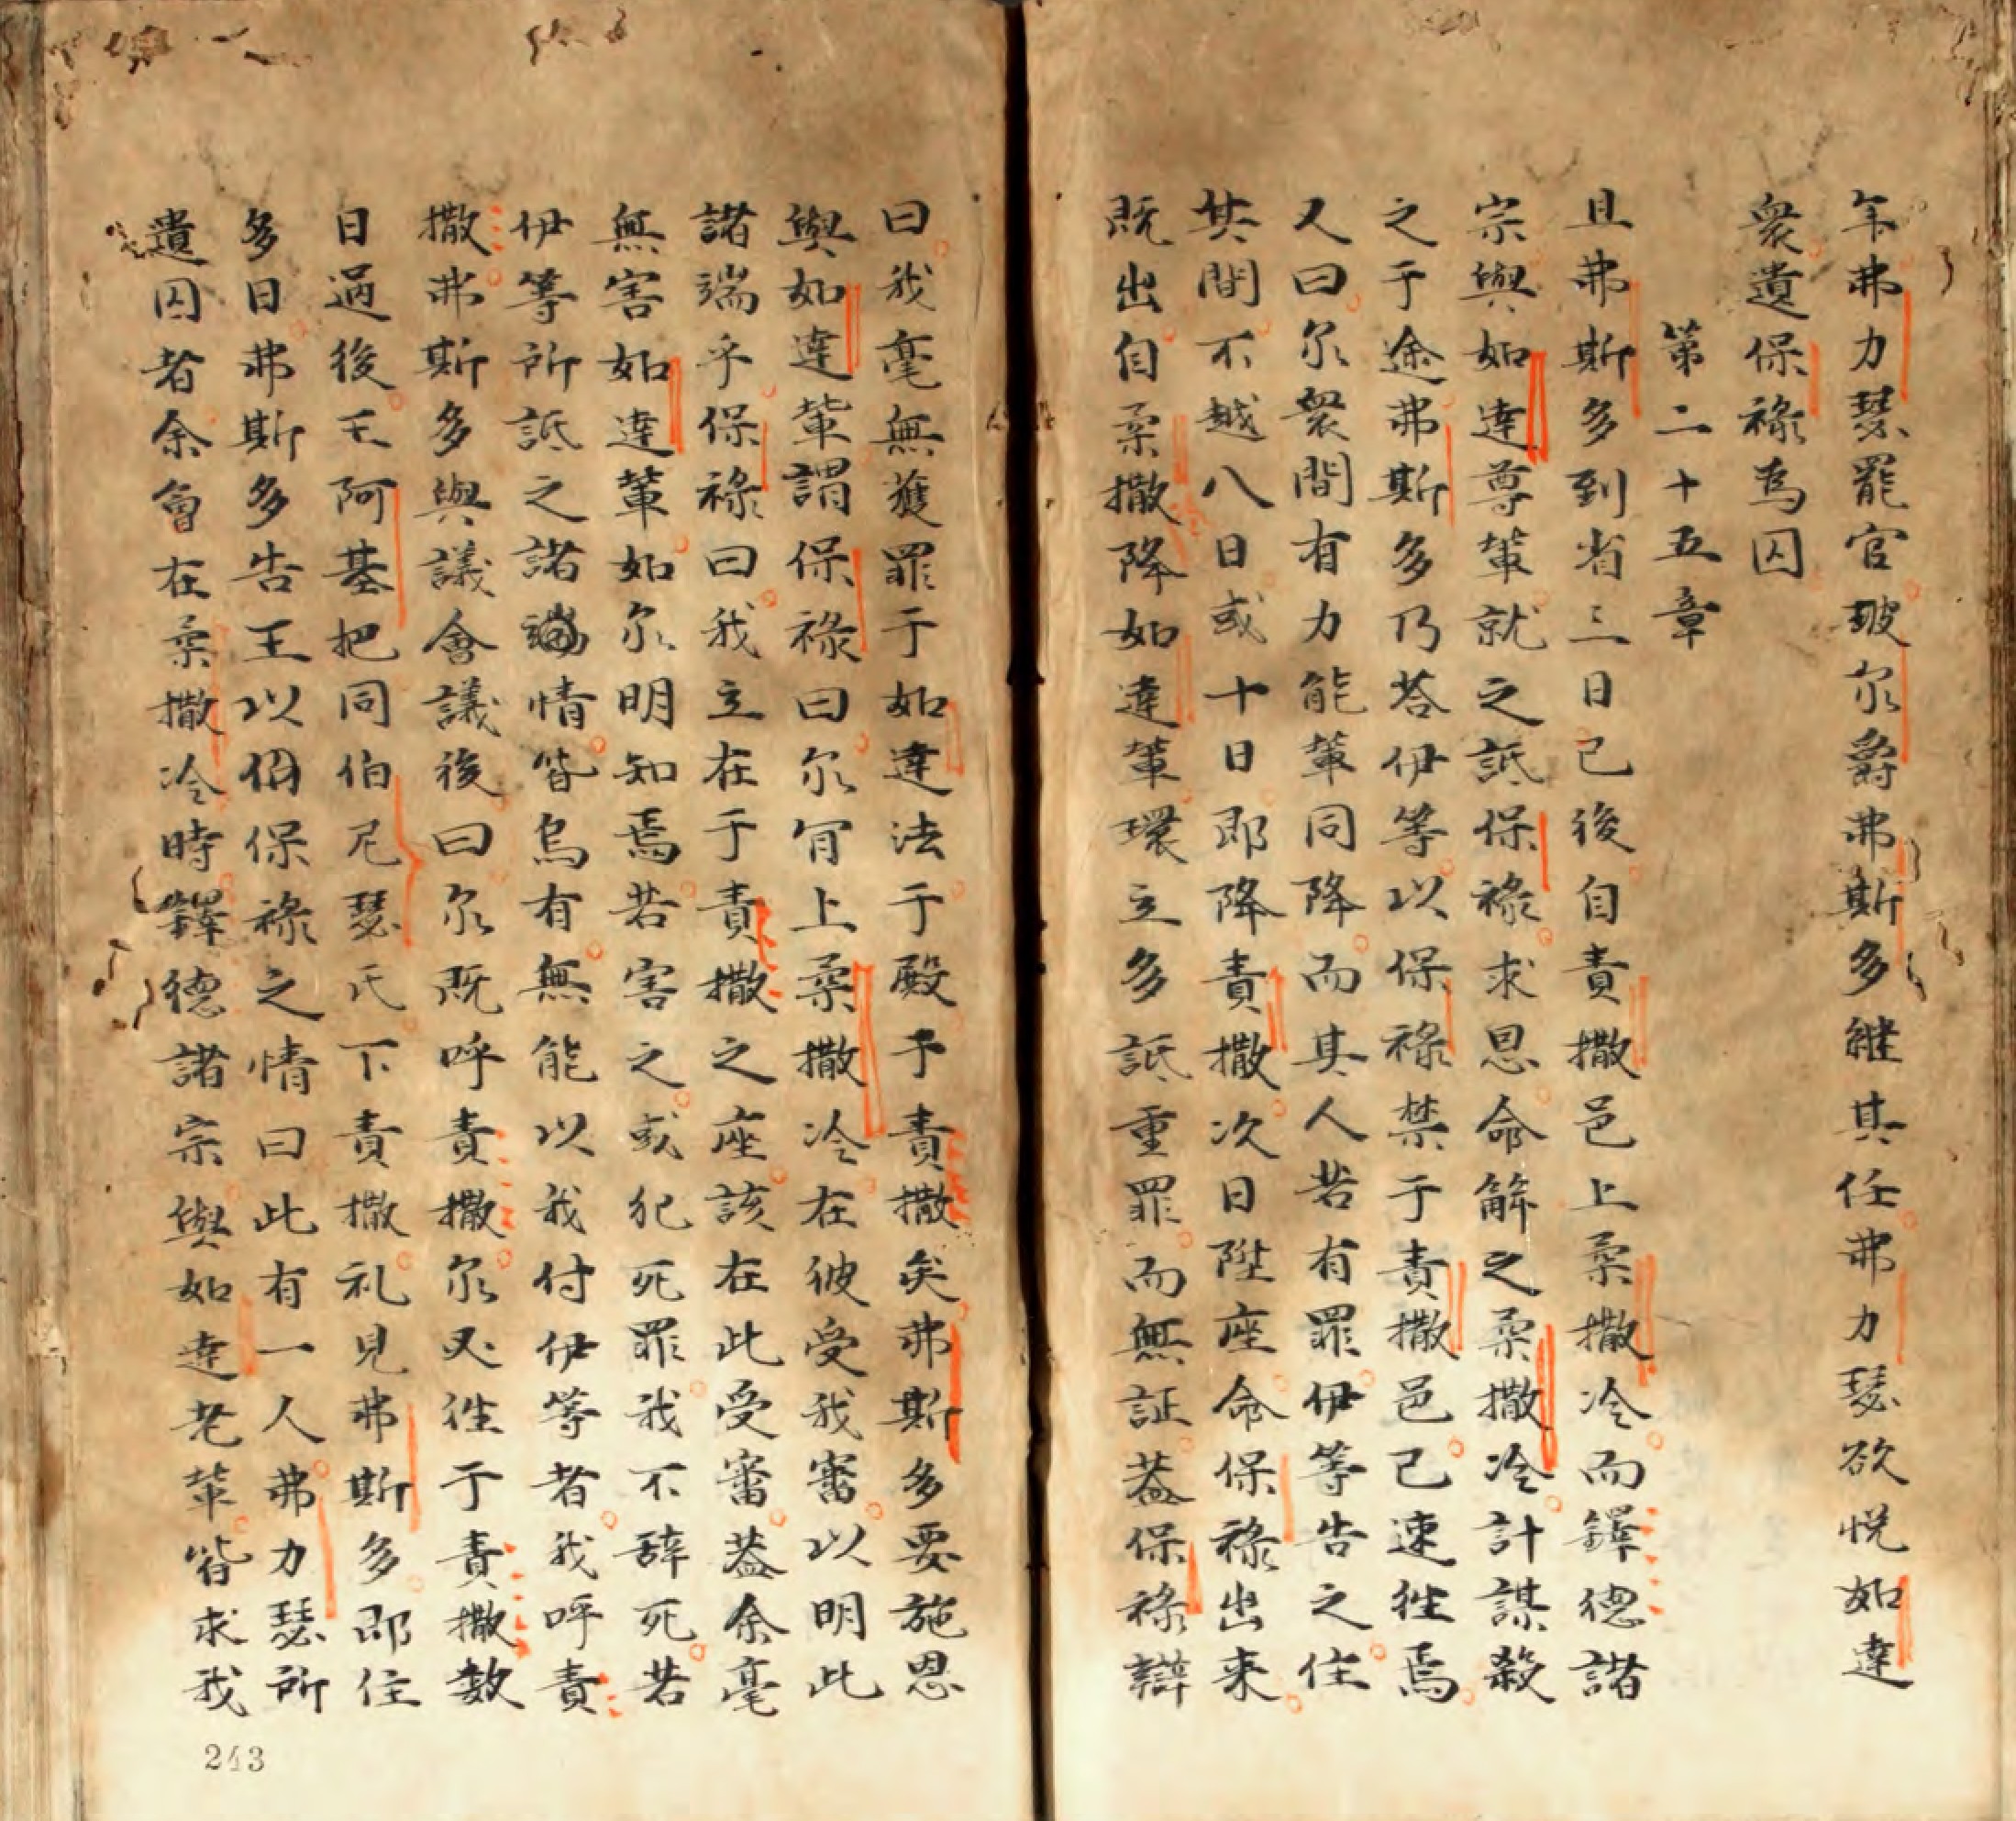 年弗力瑟罷官玻尔爵弗斯多継其任弗力瑟欲悦如達
衆遺保祿為囚
第二十五章
且弗斯多到省三日已後自責撒邑上柔撒冷而鐸德諸
宗與如達尊輩就之詆保祿求恩命解之柔撒冷計謀殺
之于途弗斯多乃荅伊等以保祿禁于責撒邑己速徃焉
人曰尔衆間有力能輩同降而其人若有罪伊等告之住
其間不越八日或十日即降責撒次日陞座命保祿出来
既出自柔撒降如達輩環立多詆重罪而無証葢保祿辯
曰我毫無獲罪于如達法于殿于責撒矣弗斯多要施恩
與如達輩謂保祿曰尔肎上柔撒冷在彼受我審以明此
諸端乎保祿曰我立在于責撒之座該在此受審葢余毫
無害如達輩如尔明知焉若害之或犯死罪我不辞死若
伊等所詆之諸端情皆烏有無能以我付伊等者我呼責
撒弗斯多與議會議後曰尔既呼責撒尔必徃于責撒数
日過後王阿基把同伯尼瑟氏下責撒礼見弗斯多即住
多日弗斯多告王以保祿之情曰此有一人弗力瑟所
遺囚者余會在柔撒冷時鐸德諸宗與如達老輩皆求我
243